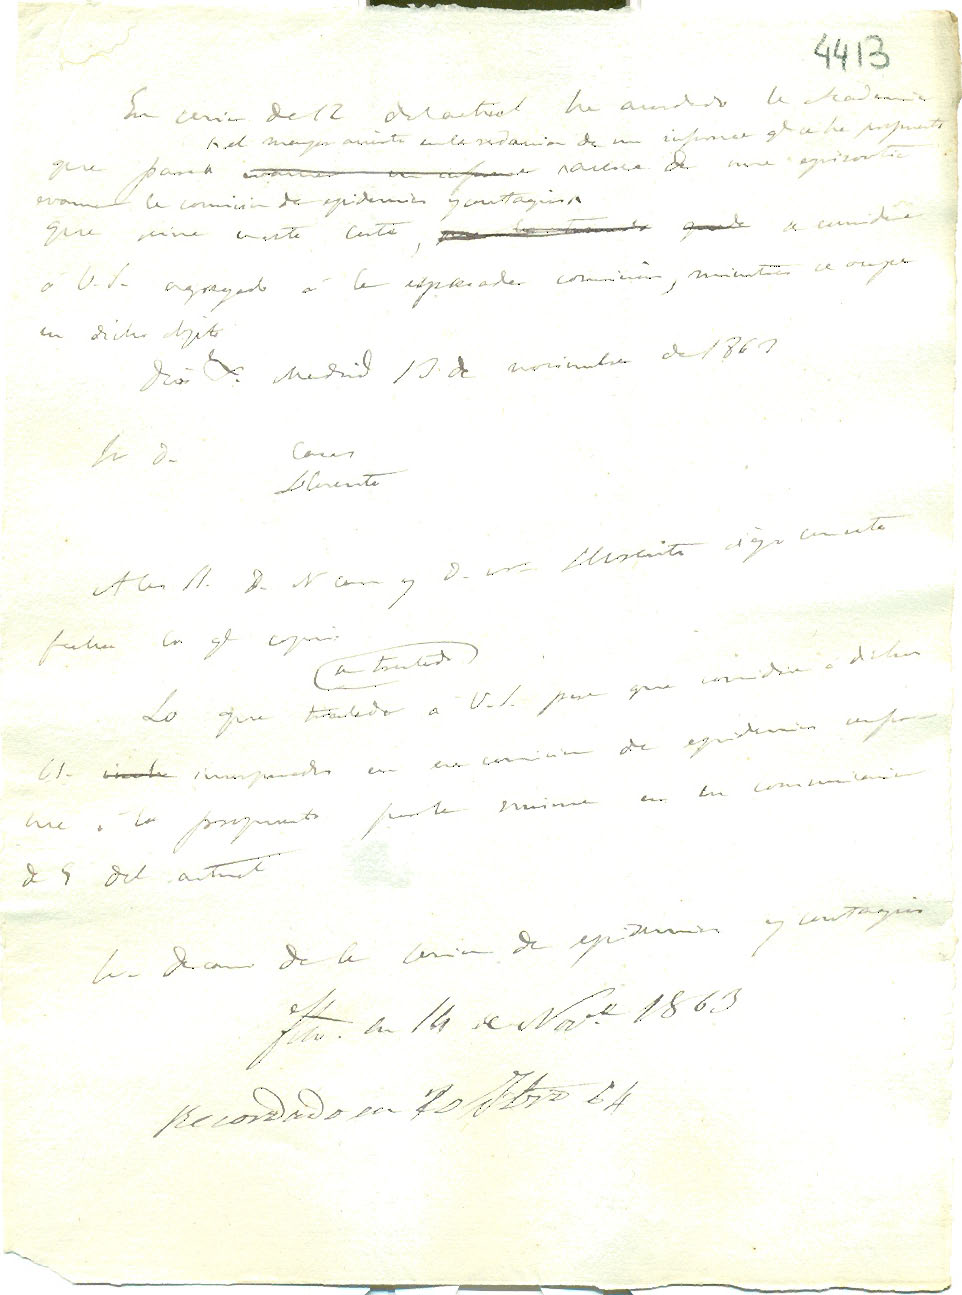 4413
En sesion de 12 del actual ha acordado la Academia
el mayor acierto en la redaccion de un informe qe se ha propuesto
que para evacuar un informe acerca de una epizootia
evacuar la comision de epidemias y contagios
que reina en esta Corte, se considere
á V.S. agregado á la espresada comision, mientras se ocupe
en dicho objeto
Dios &. Madrid 13 de noviembre de 1863
Sr. D.
Casas
Llorente
A los S. D. N Casas y D. Llorente digo con esta
fecha lo qe copio
se traslado
Lo que traslado á V.S. para que considere á dichos
incorporados en esa comision de epidemias
á lo propuesto en su comunicacion
de 9 del actual
Sr. decano de la seccion de epidemias y contagios
fho. en 14 de Nove 1863
Recordado en 20 64